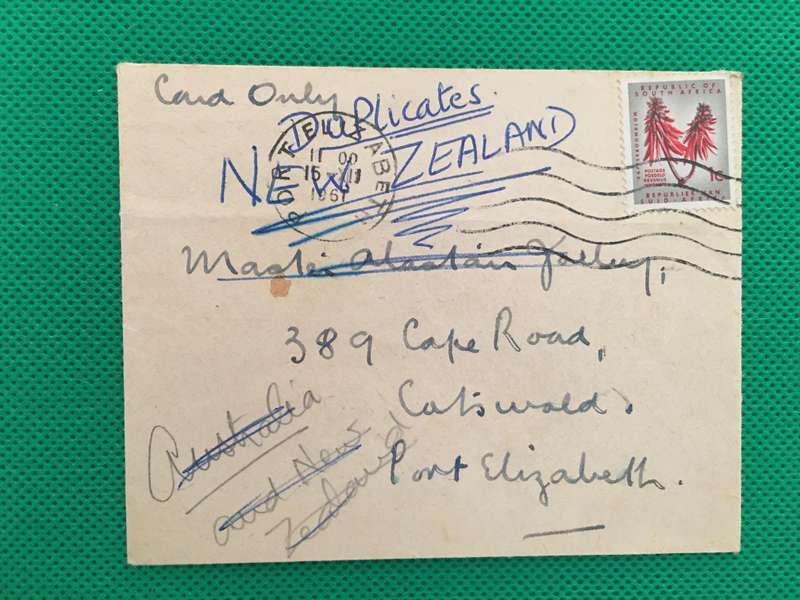 Card Only
Duplicates.
NEW ZEALAND
PORT ELIZABETH
11 00
1961
REPUBLIC OF
SOUTH AFRICA
1c
POSTAGE
POSSEEL
REVENUE
REPUBLIEK VAN
SUID-AFRIKA
Master Alastair
389 Cape Road,
Cotswold.
Port Elizabeth.
Australia
and New
Zealand